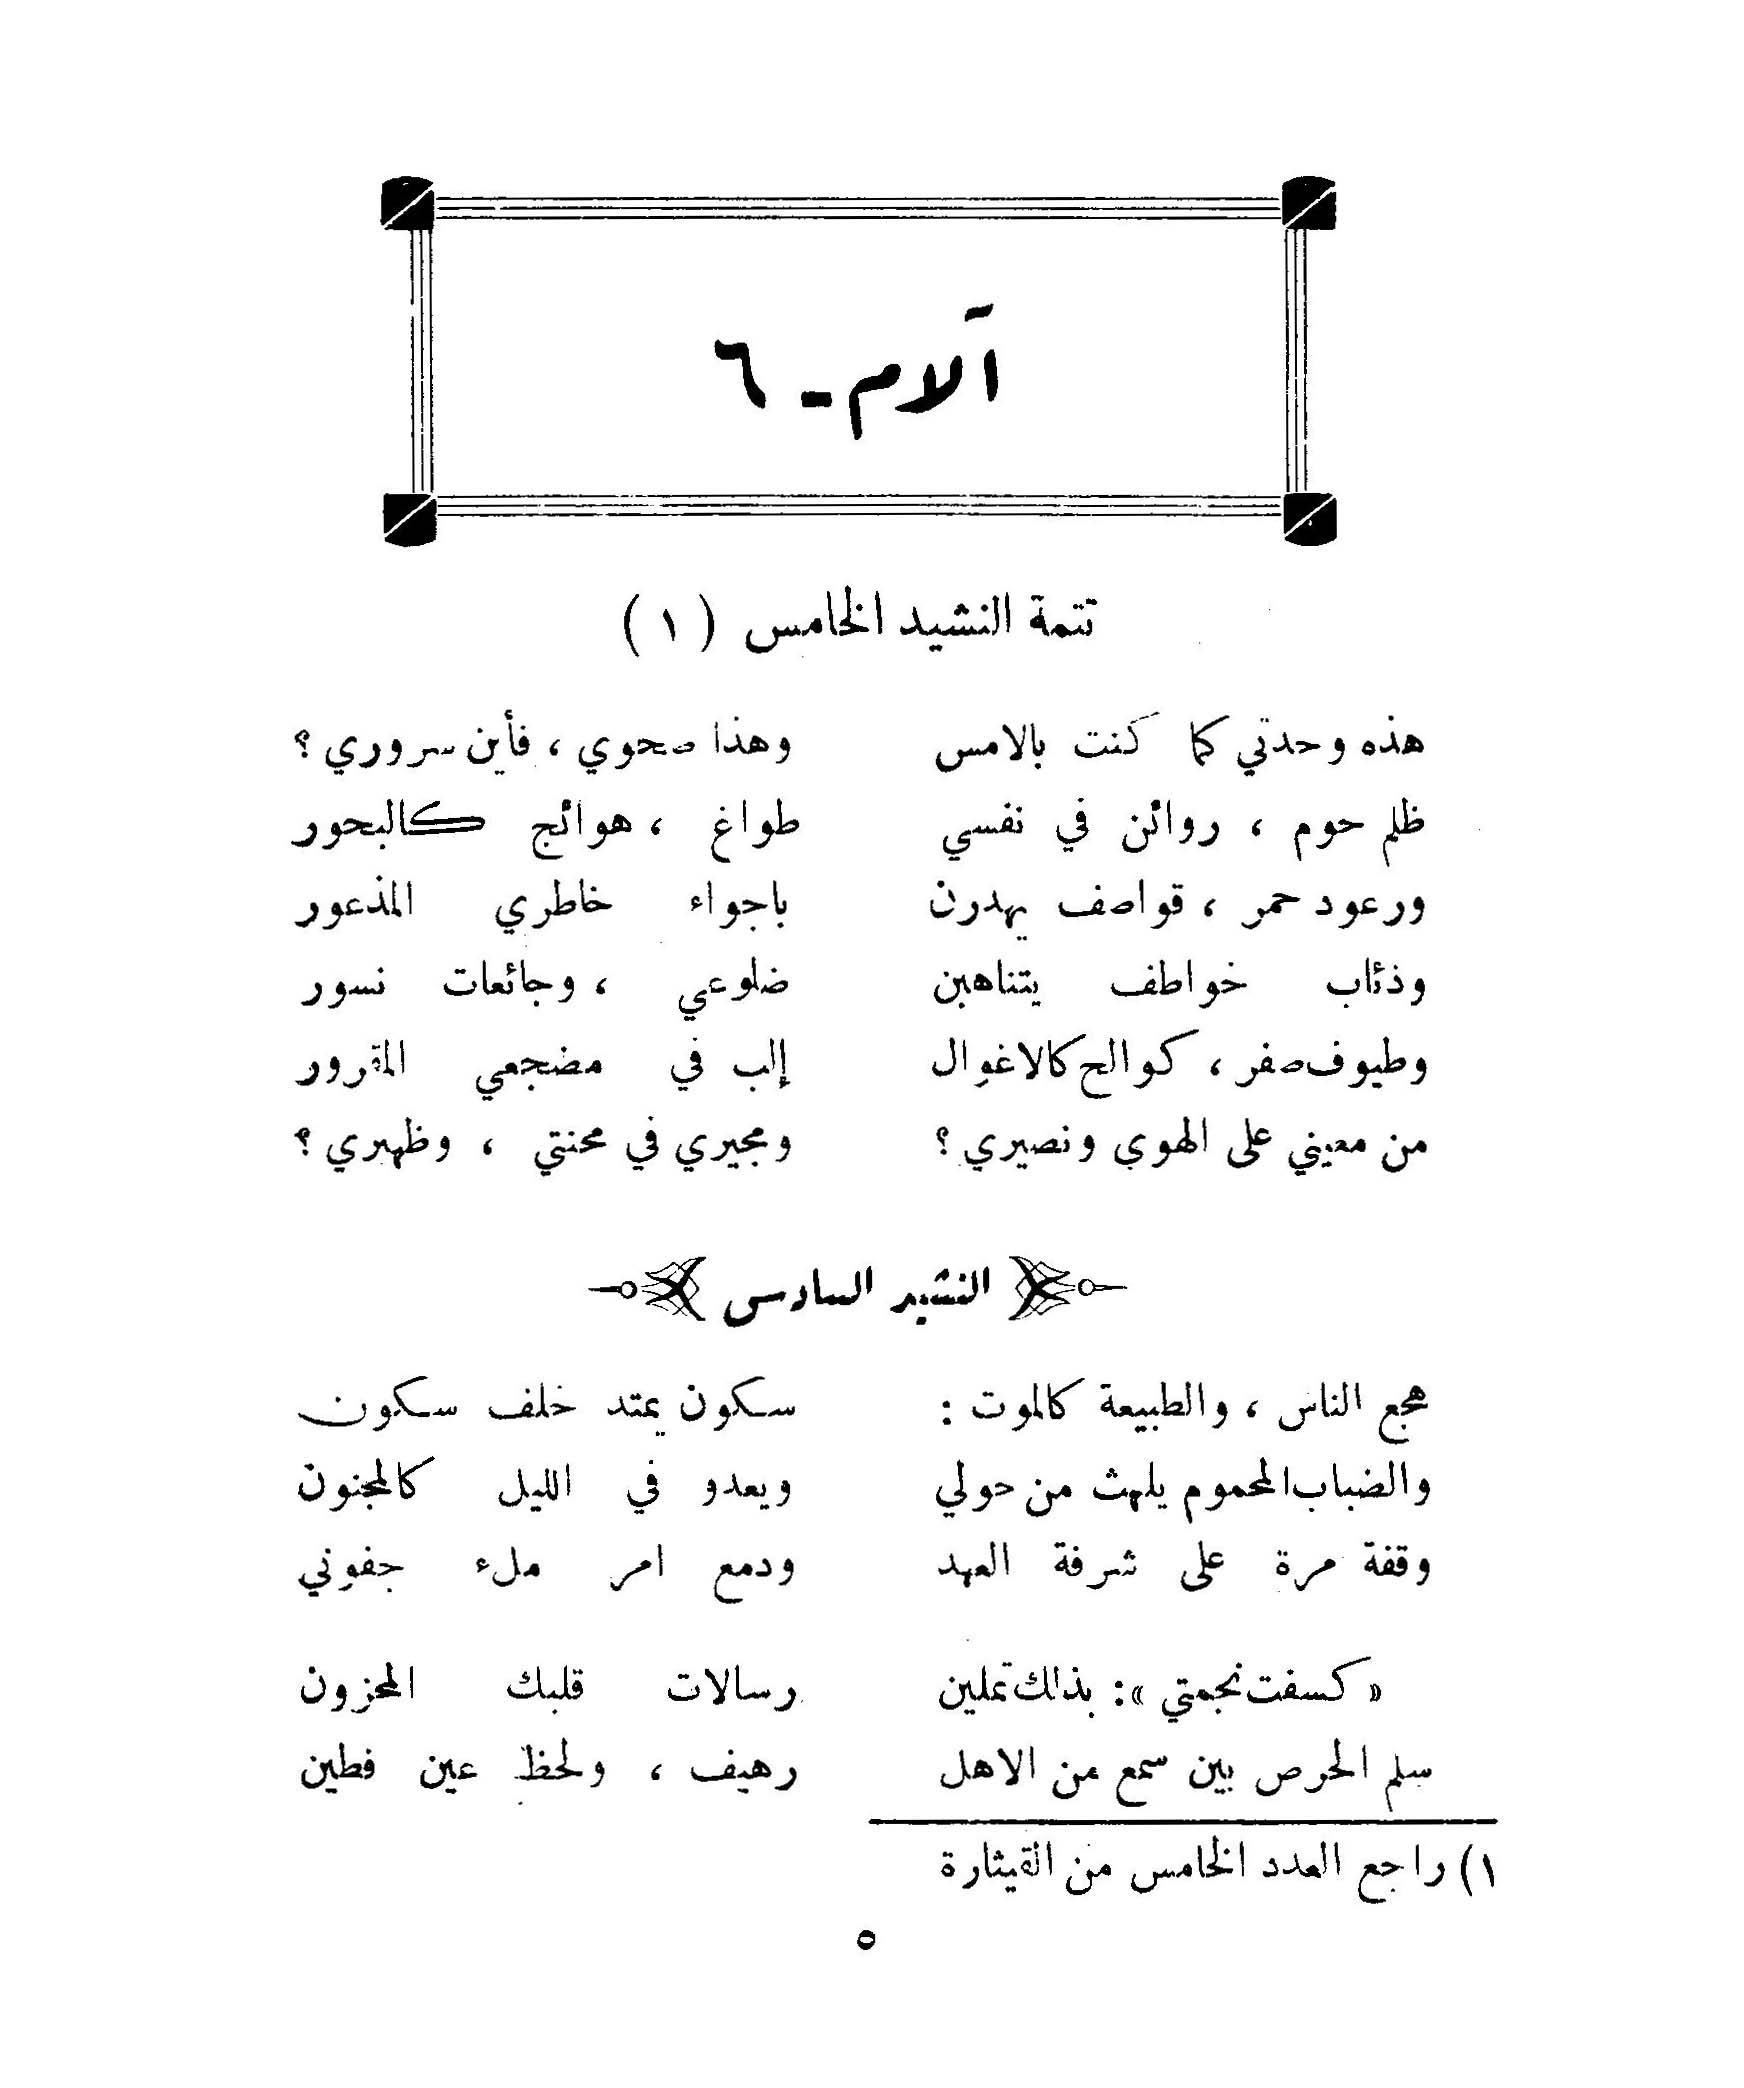 آلام - ٦
تتمة النشيد الخامس ( ١ )
هذه وحدتي كما كنت بالامس وهذا صحوي ، فأين سروري ؟
ظلم حوم ، روائن في نفسي طواغ ، هوائج كالبحور
ورعود حمر ، قواصف يهدرن باجواء خاطري المذعور
وذئاب خواطف يتناهبن ضلوعي ، وجائعات نسور
وطيوف صفر ، كوالح كالاغوال إلب في مضجعي المقرور
من معيني على الهوى ونصيري ؟ ومجيري في محنتي ، وظهيري ؟
النشيد السادس
هجع الناس ، والطبيعة كالموت : سكون يمتد خلف سكون
والضباب المحموم يلهث من حولي ويعدو في الليل كالمجنون
وقفة مرة على شرفة العهد ودمع امر ملء جفوني
« كسفت نجمتي » : بذلك تملين رسالات قلبك المحزون
سلم الحرص بين سمع من الاهل رهيف ، ولحظ عين فطين
١) راجع العدد الخامس من القيثارة
٥